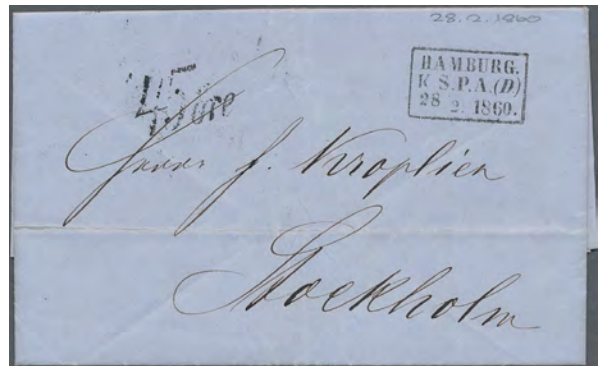 28.2.1860
HAMBURG.
K S.P.A.(D)
28 2. 1860.
öre
Herrn J. Kroplien
Stockholm